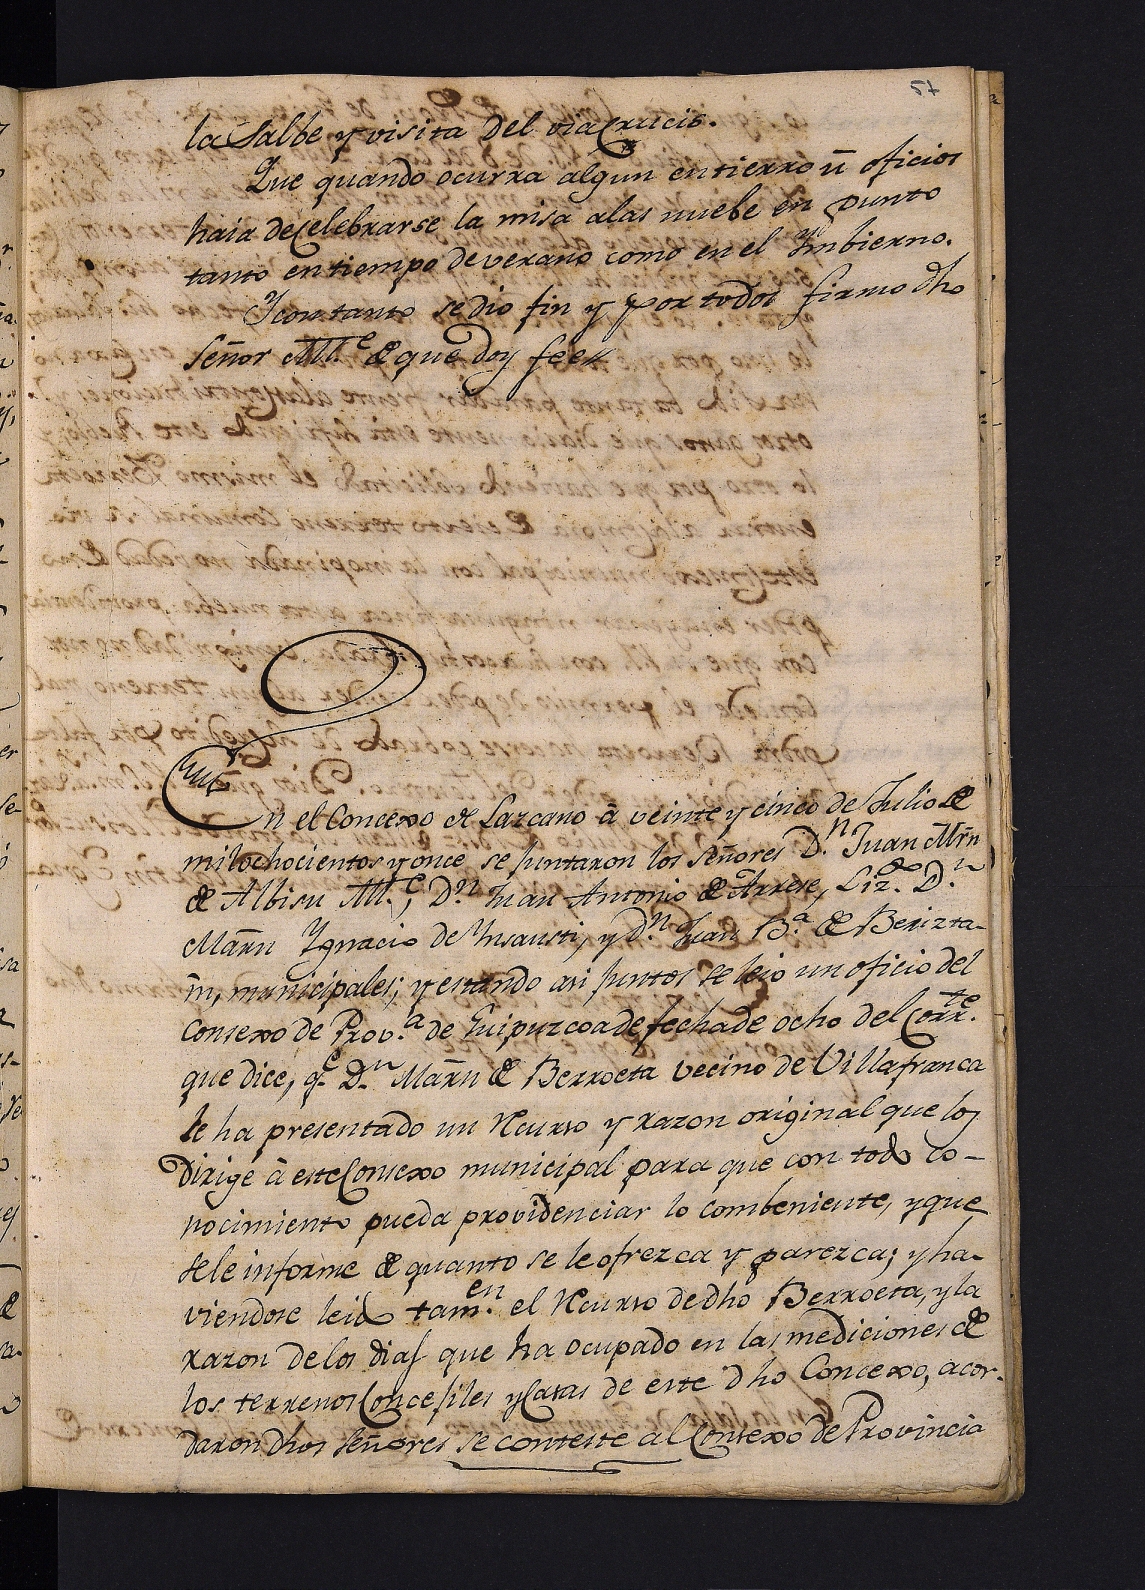 57
la Salbe y visita del via Crucis.
Que quando ocurra algun entierro ũ oficios
haia de Celebrarse la misa alas nuebe en punto
tanto en tiempo de verano como en el Ymbierno.
Y con tanto se dio fin y por todos firmo dho
Señor Alc.e de que doy fee
En el Concexo de Lazcano â veinte y cinco de Julio de
mil ochocientos y once se juntaron los Señores D.n Juan Mrn
de Albisu Alc.e, D.n Juan Antonio de Arrese, Liz.do D.n
Marñ Ygnacio de Ynsausti, y d.n Juan B.a de Berizta-
in, municipales; y estando asi juntos se leio un oficio del
Consexo de Prov.a de Guipuzcoa de fecha de ocho del Corr.te
que dice, q.e D.n Marñ de Berroeta vecino de Villafranca
le ha presentado un Recurso y razon original que los
dirige â este Consexo municipal para que con todo co-
nocimiento pueda providenciar lo combeniente, y que
se le informe de quanto se le ofrezca y parezca; y ha-
viendose leido tam.en el Recurso de dho Berroeta, y la
razon de los dias que ha ocupado en las mediciones de
los terrenos Concejiles y Casas de este dho Concexo, acor-
daron dhos Señores se conteste al Consexo de Provincia